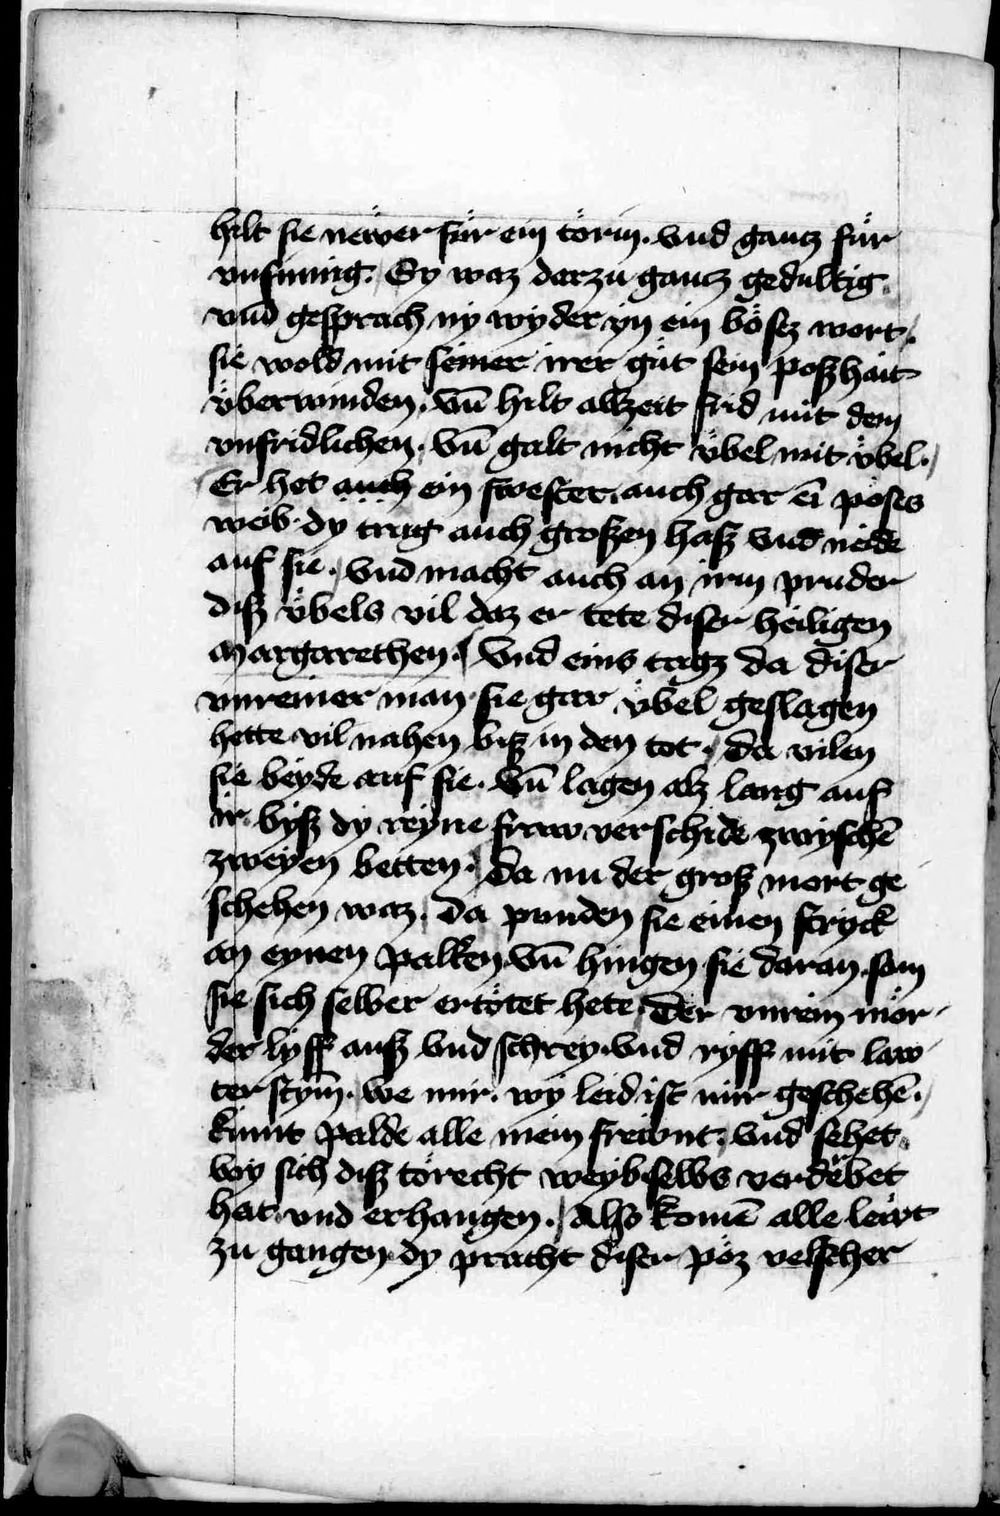 hilt sie newer für ein törin. vnd gancz für
vnsinnig. Sy waz darzu gancz gedultig.
vnd gesprach ny wyder yn ein bösez wort.
sie wold mit seiner irer güt sein poßhait
vberwinden. Vn̄ hilt allzeit frid mit dem
vnfridlichen. Vn̄ galt nicht vbel mit vbel.
Er het auch ein swester. auch gar ei̅ pöses
weib. dy trug auch großen haß vnd neide
auf sie. Vnd macht auch an irm pruder
diß vbels vil daz er tete diser heiligen
Margarethen. Vnd eins tagz da diser
vnreiner man sie gar vbel geslagen
hette vil nahen biß in den tot. Da vilen
sie beyde auf sie. Vn̄ lagen alz lang auf
ir. byß dy reyne fraw verschide zwysche̅
zweyen betten. Da nu der groß mort ge
schehen waz. Da punden sie einen stryck
an eynen palken. Vn̄ hingen sie daran. sam
sie sich selber ertötet hete. Der vnrein mör-
der lyff auß vnd schrey. vnd ryff mit law
ter stym̅. we mir. wy leid ist mir geschehe̅.
kumt palde alle mein frewnt. vnd sehet.
wy sich diß törecht weyb selbs verderbet
hat. vnd erhangen. Also kome̅ alle lewt
zu gangen. dy pracht diser pöz velscher